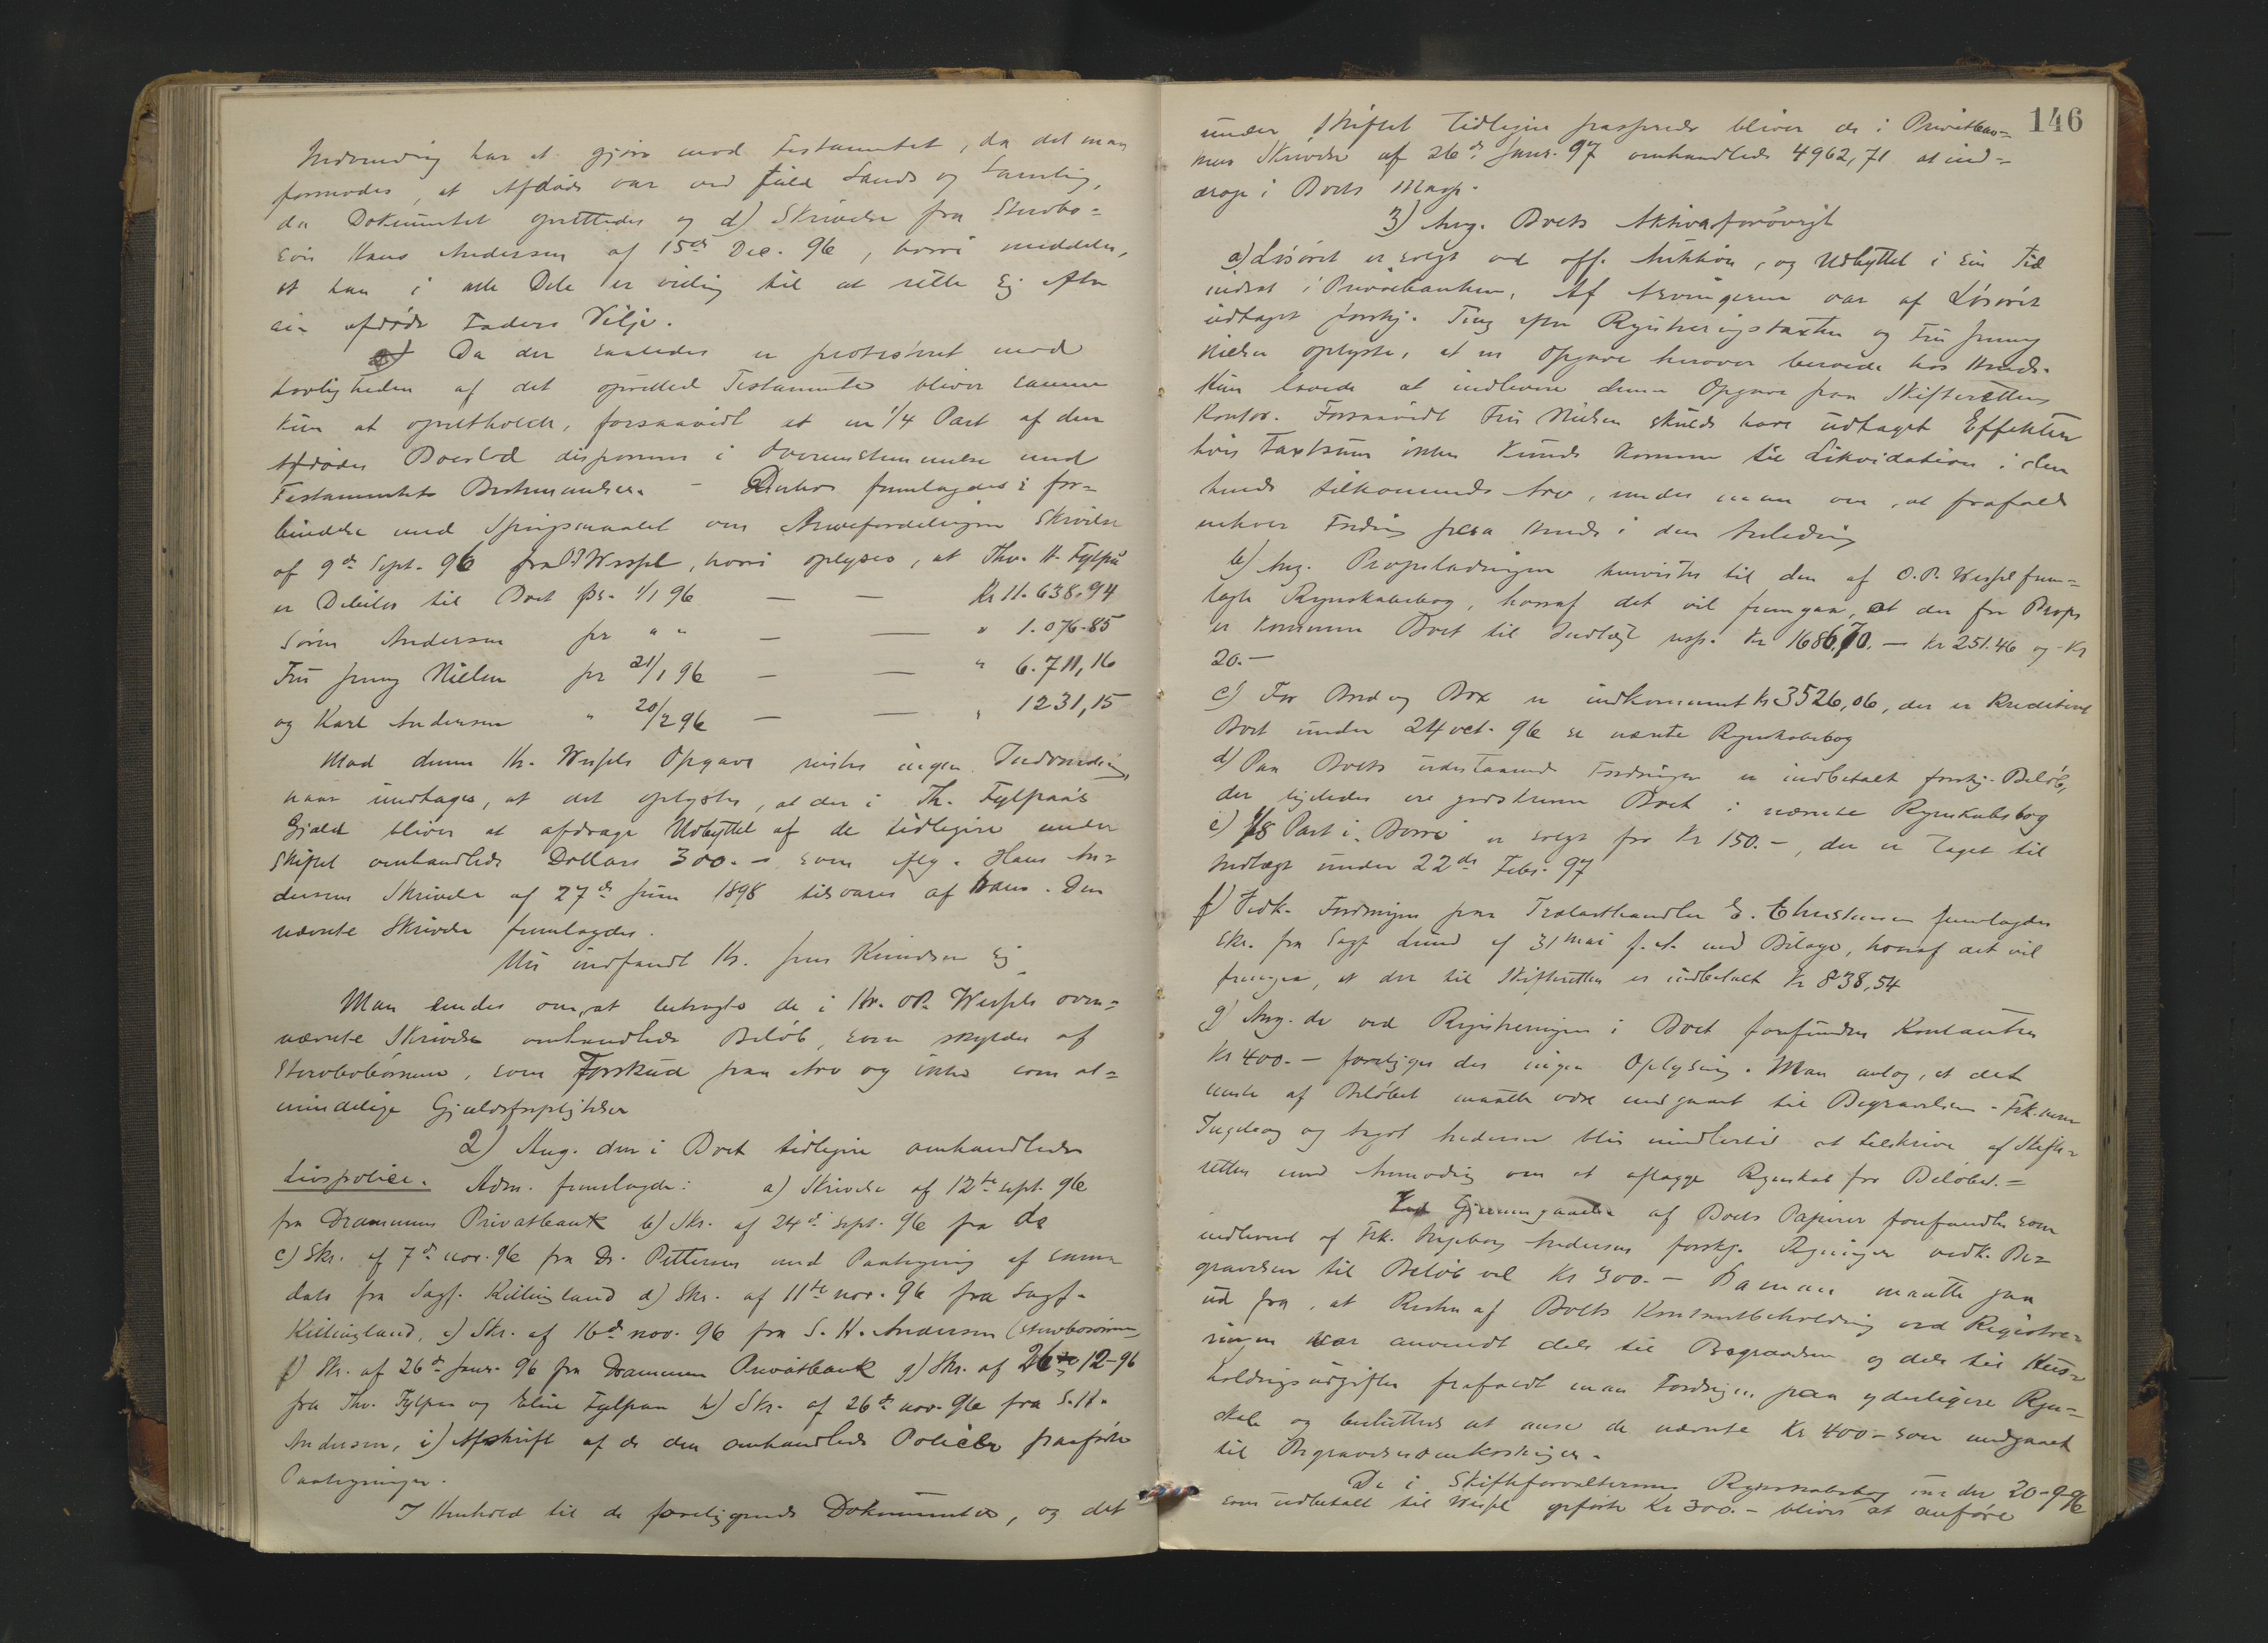 Indvending har at gjøre mod Testamentet, da det maa
formodes, at Afdøde var ved fuld Sands og Samling,
da Dokumentet oprettedes og d) Skrivelse fra Stervbo-
søn Hans Andersen af 15de Dec. 96, hvori meddeles,
at han i alle Dele er villig til at rette sig efter
sin afdøde Faders Vilje.
Da der saaledes er protesteret mod
Lovligheden af det oprettede Testamente bliver samme
kun at opretholde, forsaavidt at en 1/4 Part af den
Afdødes Boeslod disponeres i Overensstemmelse med
Testamentets Bestemmelser. - Derhos fremlagdes i for-
bindelse med Spørgsmaalet om Arvefordelingen Skrivelse
af 9de Sept. 96 fra Wessel, hvori oplyses, at Thv. H. Fylpaa
er Debitor til Boet pr. 1/1 96 — — Kr 11.638.94
Søren Andersen pr " " — — " 1.076.85
Fru Jenny Nielsen pr 21/1 96 — — " 6.711,16
og Karl Andersen " 20/2 96 — — " 1231,15
Mod denne Hr. Wessels Opgave reistes ingen Indvending,
naar undtages, at det oplystes, at der i Th. Fylpaa's
Gjæld bliver at afdrage Udbyttet af de tidligere under
Skiftet omhandlede Dollars 300.- som iflg. Hans An-
dersens Skrivelse af 27de Juni 1898 tilsvares af ham. Den
nævnte Skrivelse fremlagdes.
Nu indfandt Hr. Jens Knudsen sig
Man enedes om, at betragte de i Hr. O.P. Wessels oven-
nævnte Skrivelse omhandlede Beløb, som skyldes af
Stervbobørnene, som Forskud paa Arv og ikke som al-
mindelige Gjældsforpligtelser
2) Ang. den i Boet tidligere omhandlede
Livspolice. Adm. fremlagde: a) Skrivelse af 12te sept. 96
fra Drammens Privatbank b) Skr. af 24de sept. 96 fra do
c) Skr. af 7de nov. 96 fra Dr. Pettersen med Paategning af samme
dato fra Sagf. Killingland d) Skr. af 11te nov. 96 fra Sagf.
Killingland, e) Skr. af 16de nov. 96 fra S. H. Andersen (stervbosønnen
f) Skr. af 26de Janr. 96 fra Drammens Privatbank g) Skr. af 26de/12-96
fra Thv. Fylpaa og Elise Fylpaa h) Skr. af 26de nov. 96 fra S. H.
Andersen, i) Afskrift af de den omhandlede Police paaførte
Paategninger.
I Henhold til de foreliggende Dokumenter, og det
146
under Skiftet tidligere passerede bliver de i Privatban-
kens Skrivelse af 26de Janr. 97 omhandlede 4962,71 at ind-
drage i Boets Masse.
3) Ang. Boets Aktiva forøvrigt
a) Løsøret er solgt ved off. Auktion, og Udbyttet i sin Tid
indsat i Privatbanken. Af Arvingerne var af Løsøret
udtaget forskj. Ting efter Registreringstaxten og Fru Jenny
Nielsen oplyste, at en Opgave herover beroede hos hende.
Hun lovede at indlevere denne Opgave paa Skifterettens
Kontor. Forsaavidt Fru Nielsen skulde have udtaget Effekter
hvis Taxtsum ikke kunde komme til Likvidation i den
hende tilkommende Arv, enedes man om, at frafalde
enhver Fordring paa hende i den Anledning
b) Ang. Propsladningen henvistes til den af O.P. Wessel frem-
lagte Regnskabsbog, hvoraf det vil fremgaa, at der for Props
er kommen Boet til Indtægt resp. Kr 1686,70. — Kr 251.46 og Kr
20.—
c) For Bred og Box er indkommet Kr 3526,06, der er krediteret
Boet under 24 oct. 96 se nævnte Regnskabsbog
d) Paa Boets udestaaende Fordringer er indbetalt forskj. Beløb,
der ligeledes ere godskrevne Boet i nævnte Regnskabsbog
e) 1/8 Part i "Borre" er solgt for Kr 150.-, der er taget til
Indtægt under 22de Febr. 97
f) Vedk. Fordringen paa Trælasthandler E. Christensen fremlagdes
Skr. fra Sagf. Lund af 31 mai f. A. med Bilage, hvoraf det vil
fremgaa, at der til Skifteretten er indbetalt Kr 838,54
g) Ang. de ved Registreringen i Boet forefundne Kontanter
Kr 400.— foreligger der ingen Oplysning. Man antog, at det
meste af Beløbet maatte være medgaaet til Begravelsen.
Ingeborg og Aagot Andersen blir imidlertid at tilskrive af Skifte-
retten med Anmodning om at aflægge Regnskab for Beløbet.=
Ved Gjennemgaaelse af Boets Papirer forefandtes som
indleveret af Frk. Ingeborg Andersen forskj. Regninger vedk. Be-
gravelsen til Beløb vel Kr 300.— Da man maatte gaa
ud fra, at Resten af Boets Kontantbeholdning ved Registre-
ringen var anvendt dels til Begravelsen og dels til Hus-
holdningsudgifter frafaldt man Fordringen paa yderligere Regn-
skab og besluttede at anse de nævnte Kr 400.- som medgaaet
til Begravelsesomkostninger.
De i Skifteforvalterens Regnskabsbog under 20-9-96
som udbetalt til Wessel opførte Kr 300.- bliver at anføre